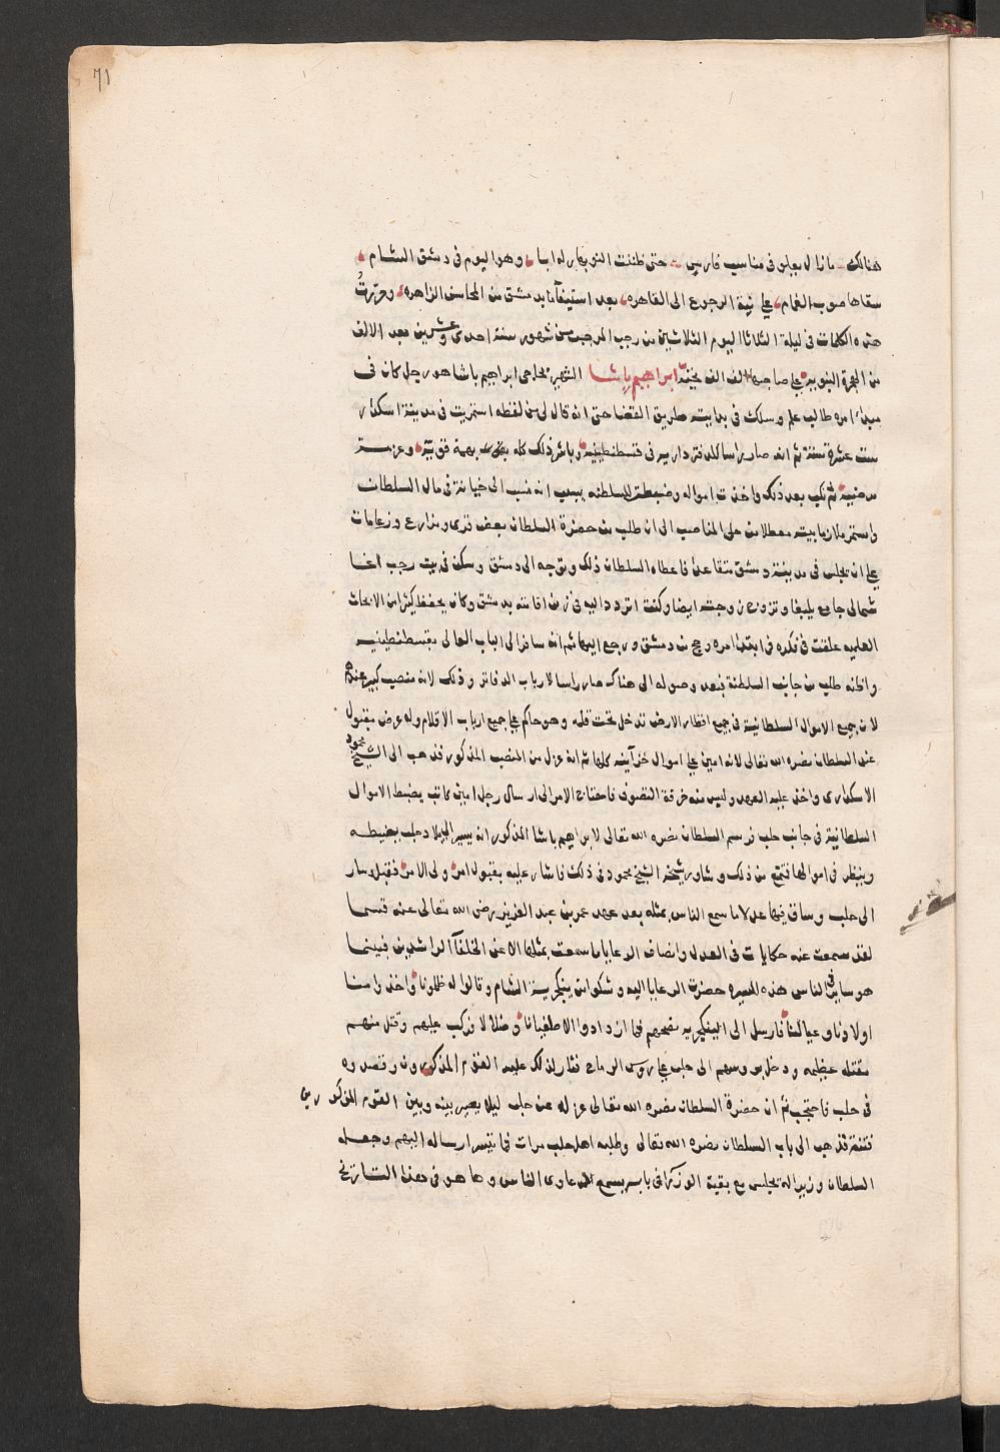 71
هنالك مازال يعلو في مناسب فارس حتى ظننت النوبهار له ابا وهو اليوم في دمشق الشام
سقاها صوب الغمام على نية الرجوع الى القاهره بعد استيفآئنا بدمشق من المحاسن الزاهره وحررتُ
هذه الكلمات في ليلة الثلاثا اليوم الثلاثين من رجب المرجب من شهور سنة احدى وعشرين بعد الالف
من الهجرة النبوية على صاحبها الف الف تحيّة ابراهيم باشا الشهير بحاجي ابراهيم باشا هو رجل كان في
مبدأ امره طالب علم وسلك في بدايته طريق القضا حتى انه قال لي من لفظه استمريت في مدينة اسكدار
ست عشرة سنة ثم انه صار راسا للدفتردارية في قسطنطينية وباشر ذلك كله بهمة قوية وعزمة
مرضية ثم نكب بعد ذلك واخذت امواله وضبطت للسلطنه بسبب انه نسب الى خيانة في مال السلطان
واستمر ملازما بيته معطلا من حلى المناصب الى ان طلب من حضرة السلطان بعض قرى ومزارع وزعامات
على ان يجلس في مدينة دمشق متقاعدا فاعطاه السلطان ذلك وتوجه الى دمشق وسكن في بيت رجب اغا
شمالي جامع يلبغا وتزوج زوجته ايضا وكنت اتردد اليه في زمن اقامته بدمشق وكان يحفظ كثيرا من الابحاث
العلميه علقت في فكره في ابتدا امره وحج من دمشق ورجع اليها ثم انه سافر الى الباب العالي بقسطنطينيه
واظنه طلب من جانب السلطنة فبعد وصوله الى هناك صار راسا لارباب الدفاتر وذلك لانه منصب كبير عندهم
لان جميع الاموال السلطانية في جميع اقطار الارض تدخل تحت قلمه وهو حاكم على جميع ارباب الاقلام وله عرض مقبول
عند السلطان نصره الله تعالى لانه امين على اموال خزآينه كلها ثم انه عزل من المنصب المذكور فذهب الى الشيخ محمود
الاسكداري واخذ عليه العهد ولبس منه خرقة التصوف فاحتاج الامر الى ارسال رجل امين كاتب يضبط الاموال
السلطانية في جانب حلب فرسم السلطان نصره الله تعالى لابراهيم باشا المذكور انه يسير الى بلاد حلب يضبطه
وينظر في اموالها فتمنع من ذلك وشاور شيخه الشيخ محمود في ذلك فاشار عليه بقبول امر ولي الامر فقبل وسار
الى حلب وساق فيها عدلا ما سمع الناس بمثله بعد عهد عمر بن عبد العزيز رضي الله تعالى عنه قسما
لقد سمعت عنه حكايات في العدل وانصاف الرعايا ما سمعت بمثلها الا عن الخلفآ الراشدين فبينما
هو ساير في الناس هذه السيره حضرت الرعايا اليه وشكوا من ينكجرية الشام وقالوا له ظلمونا واخذوا منا
اولادنا وعيالنا فارسل الى الينكجريه نصحهم فما ازدادوا الا طغيانا وضلالا فركب عليهم وقتل منهم
مقتله عظيمه ودخل بروسهم الى حلب على روس الرماح فثار لذلك عليه القوم المذكورون وقصدوه
في حلب فاحتجب ثم ان حضرة السلطان نصره الله تعالى عزله عن حلب ليلا يصير بينه وبين القوم المذكورين
فتنة فذهب الى باب السلطان نصره الله تعالى وطلبه اهل حلب مرات فما تيسر ارساله اليهم وجعله
السلطان وزيرا له يجلس مع بقية الوزرآ في يسمع الدعاوى الناس وها هو في هذا التاريخ